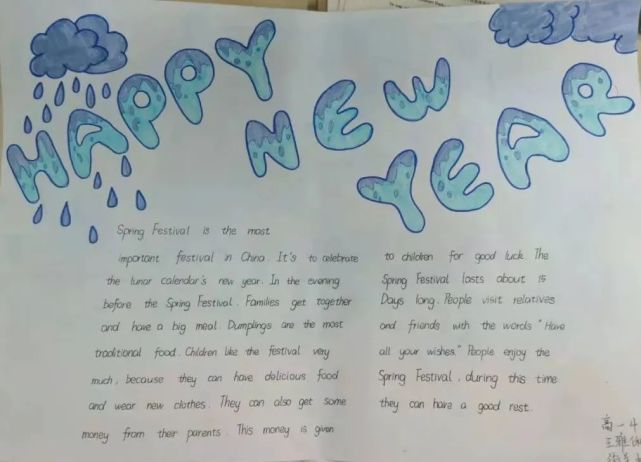 HAPPY
NEW
YEAR
Spring Festival is the most
important festival in China. It's to celebrate
the lunar calendar's new year. In the evening
before the Spring Festival. Families get together
and have a big meal. Dumplings are the most
traditional food. Children like the festival very
much, because they can have delicious food
and wear new clothes. They can also get some
money from their parents. This money is given
to children for good luck. The
Spring Festival lasts about 15
Days long. People visit relatives
and friends with the words "Have
all your wishes." People enjoy the
Spring Festival, during this time
they can have a good rest.
高一4
王雅